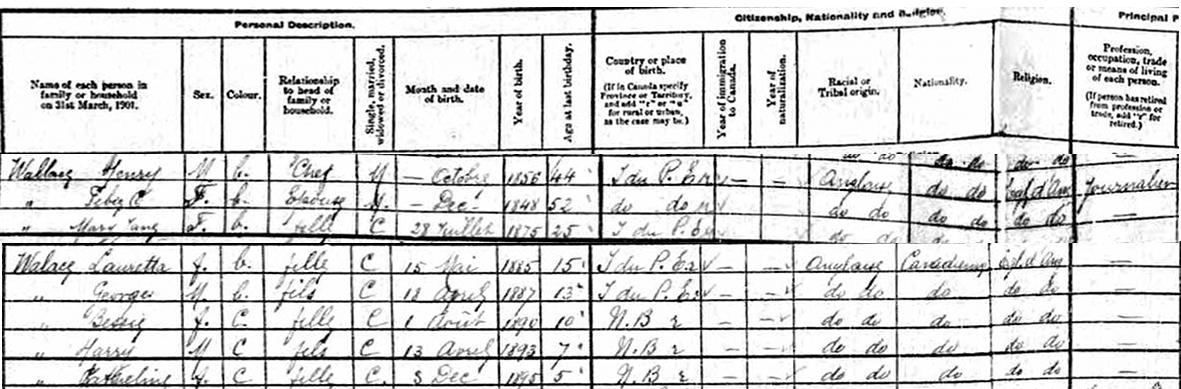 Personal Description. Citizenship, Nationality and Religion. Principal P
Name of each person in family or household on 31st March, 1901. Sex. Colour. Relationship to head of family or household. Single, married, widowed or divorced. Month and date of birth. Year of birth. Age at last birthday. Country or place of birth. (If in Canada specify Province or Territory, and add "r" or "u" for rural or urban, as the case may be.) Year of immigration to Canada. Year of naturalization. Racial or Tribal origin. Nationality. Religion. Profession, occupation, trade or means of living of each person. (If person has retired from profession or trade, add "r" for retired.)
do do do do do do
Wallace Henry M b. Chef M — Octobre 1856 44 I du P. E r — — Anglaise do do Egl d'Ang Journalier
" F. b. Epouse M. — Dec 1848 52 do do r do do do do do do —
" Mary F. b. fille C 28 Juillet 1875 25 I du P. E r do do do do do do —
Walace Lauretta f. b. fille C 15 Mai 1885 15 I du P. E r — — Anglaise Canadienne Egl. d'Ang —
" Georges M. b. fils C 18 Avril 1887 13 I du P. E r — — do do do do do —
" Bessie f. C. fille C 1 Août 1890 10 N. B r — — do do do do do —
" Harry M C fils C 13 Avril 1893 7 N. B r — — do do do do do —
" Katherline f. C fille C. 8 Dec 1895 5 N. B r — — do do do do do —